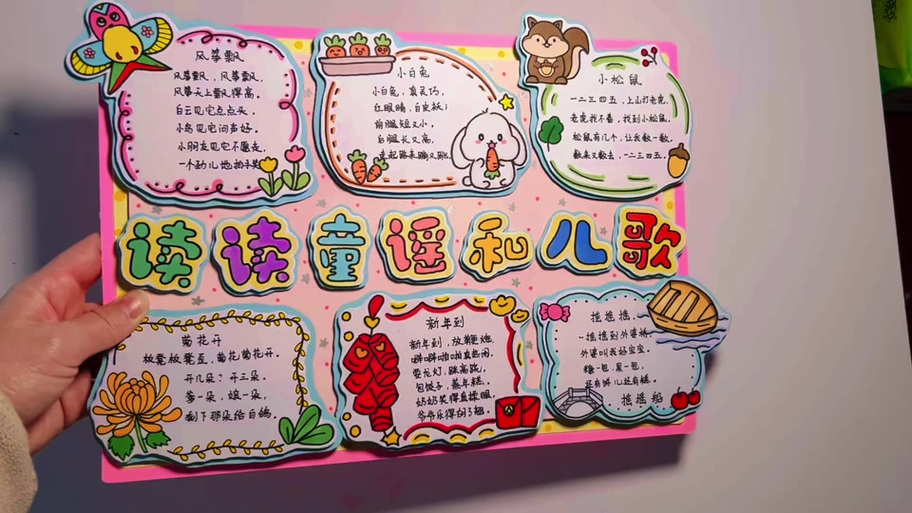 风筝飘
风筝飘，风筝飘，
风筝天上飘得高。
白云见它点点头，
小鸟见它问声好。
小朋友见它不愿走，
一个劲儿地拍手笑
小白兔
小白兔，真灵巧，
红眼睛，白皮袄；
前腿短又小，
后腿长又高，
走起路来蹦又跳。
小松鼠
一二三四五，上山打老虎，
老虎找不着，找到小松鼠。
松鼠有几个，让我数一数，
数来又数去，一二三四五。
读读童谣和儿歌
菊花开
板凳板凳歪，菊花菊花开。
开几朵？开三朵。
爹一朵，娘一朵，
剩下那朵给白鸽。
新年到
新年到，放鞭炮，
噼噼啪啪真热闹。
耍龙灯，踩高跷，
包饺子，蒸年糕，
奶奶笑得直揉眼，
爷爷乐得胡子翘。
摇摇摇
一摇摇到外婆桥，
外婆叫我好宝宝。
糖一包，果一包，
还有饼儿还有糕。
摇摇船